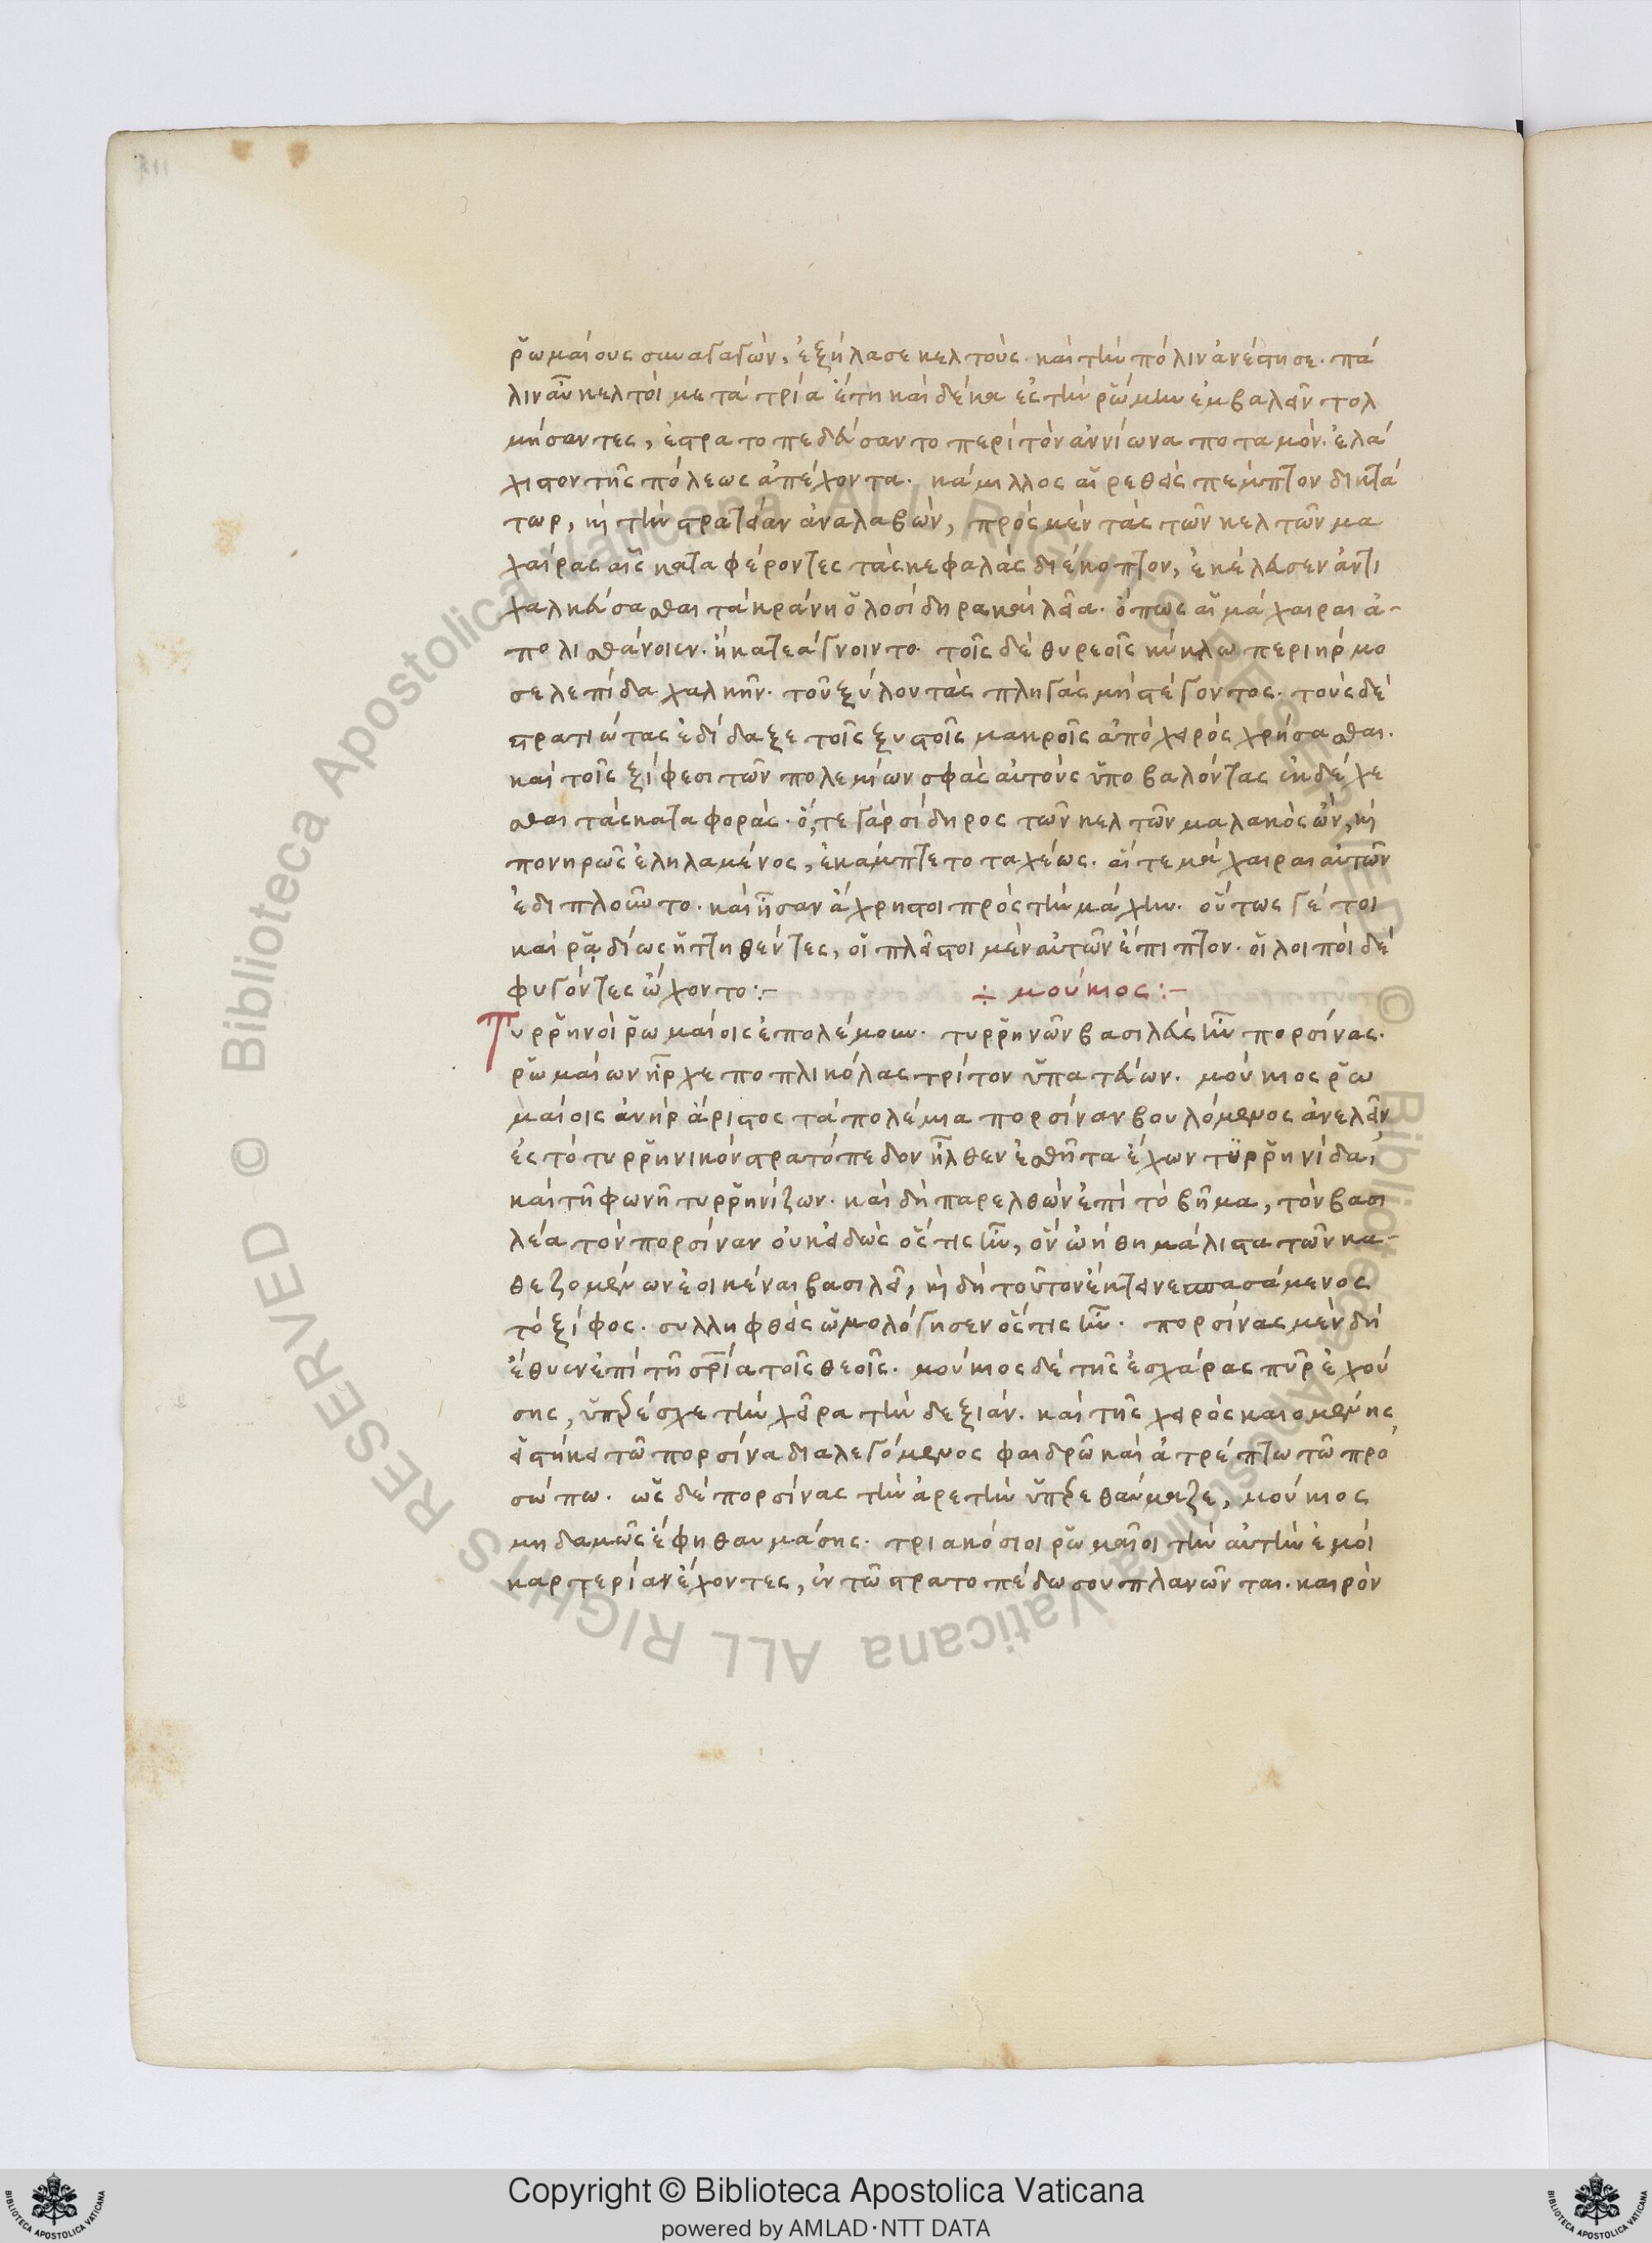 ῥωμαίους συναγαγὼν, ἐξήλασε κελτούς. καὶ τὴν πόλιν ἀνέστησε. πά
λιν αὖ κελτοὶ μετὰ τρία ἔτη καὶ δέκα ἐς τὴν ῥώμην ἐμβαλεῖν τολ
μήσαντες, ἐστρατοπεδεύσαντο περὶ τὸν ἀννίωνα ποταμόν. ἐλά
χιστον τῆς πόλεως ἀπέχοντα. κάμιλλος αἱρεθεὶς πέμπτον δικτά
τωρ, καὶ τὴν στρατείαν ἀναλαβὼν, πρὸς μὲν τὰς τῶν κελτῶν μα
χαίρας αἷς καταφέροντες τὰς κεφαλὰς διέκοπτον, ἐκέλευσεν ἀντι
χαλκεύσασθαι τὰ κράνη ὁλοσίδηρα καὶ λεῖα. ὅπως αἱ μάχαιραι ἀ-
πολισθάνοιεν. ἢ κατεάγνοιντο. τοῖς δὲ θυρεοῖς κύκλω περιήρμο
σε λεπίδα χαλκῆν. τοῦ ξύλου τὰς πληγὰς μὴ στέγοντος. τοὺς δὲ
στρατιώτας ἐδίδαξε τοῖς ξυστοῖς μακροῖς ἀπὸ χειρὸς χρήσασθαι.
καὶ τοῖς ξίφεσι τῶν πολεμίων σφᾶς αὐτοὺς ὑποβαλόντας ἐκδέχε
σθαι τὰς καταφοράς. ὅ, τε γὰρ σίδηρος τῶν κελτῶν μαλακὸς ὢν, καὶ
πονηρῶς ἐληλαμένος, ἐκάμπτετο ταχέως. αἵ τε μάχαιραι αὐτῶν
ἐδιπλοῦντο. καὶ ἦσαν ἄχρηστοι πρὸς τὴν μάχην. οὕτως γέ τοι
καὶ ῥᾳδίως ἡττηθέντες, οἱ πλεῖστοι μὲν αὐτῶν ἔπιπτον. οἱ λοιποὶ δὲ
φυγόντες ὤχοντο:- ÷ μούκιος:-
Τυρῥηνοὶ ῥωμαίοις ἐπολέμουν. τυρῥηνῶν βασιλεὺς ἦν πορσίνας.
ῥωμαίων ἦρχε ποπλικόλας τρίτον ὑπατεύων. μούκιος ῥω
μαίοις ἀνὴρ ἄριστος τὰ πολέμια πορσίναν βουλόμενος ἀνελεῖν
ἐς τὸ τυρῥηνικὸν στρατόπεδον ἦλθεν ἐσθῆτα ἔχων τυρῥηνίδα,
καὶ τῆ φωνῆ τυρῥηνίζων. καὶ δὴ παρελθὼν ἐπὶ τὸ βῆμα, τὸν βασι
λέα τὸν πορσίναν οὐκ εἰδὼς ὅς τις ἦν, ὃν ὠήθη μάλιστα τῶν κα-
θεζομένων ἐοικέναι βασιλεῖ, καὶ δὴ τοῦτον ἔκτεινε σπασάμενος
τὸ ξίφος. συλληφθεὶς ὡμολόγησεν ὅς τις ἦν. πορσίνας μὲν δὴ
ἔθυεν ἐπὶ τῆ σρία τοῖς θεοῖς. μούκιος δὲ τῆς ἐσχάρας πῦρ ἐχού
σης, ὑπερέσχε τὴν χεῖρα τὴν δεξιάν. καὶ τῆς χειρὸς καιομένης,
εἱστήκει τῶ πορσίνα διαλεγόμενος φαιδρῶ καὶ ἀτρέπτω τῶ προ
σώπω. ὡς δὲ πορσίνας τὴν ἀρετὴν ὑπερεθαύμαζε, μούκιος
μηδαμῶς ἔφη θαυμάσης. τριακόσιοι ῥωμαῖοι τὴν αὐτὴν ἐμοὶ
καρτερίαν ἔχοντες, ἐν τῶ στρατοπέδω σου πλανῶνται. καιρὸν
© Biblioteca Apostolica Vaticana ALL RIGHTS RESERVED
© Biblioteca Apostolica Vaticana ALL RIGHTS RESERVED
Copyright © Biblioteca Apostolica Vaticana
powered by AMLAD・NTT DATA
BIBLIOTECA APOSTOLICA VATICANA
BIBLIOTECA APOSTOLICA VATICANA